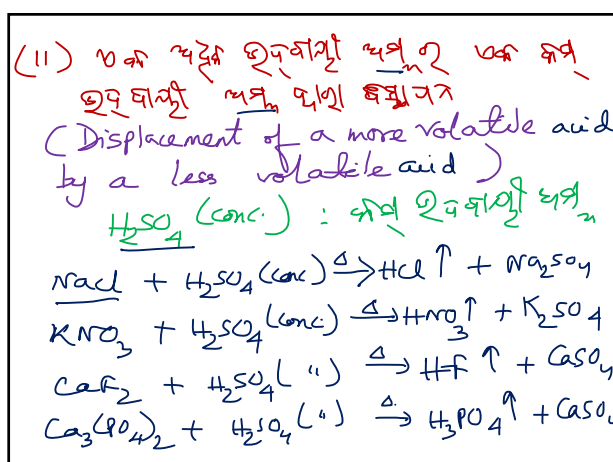 (II) ଏକ ଅଧିକ ଉଦ୍‌ବାୟୀ ଅମ୍ଳର ଏକ କମ୍
ଉଦ୍‌ବାୟୀ ଅମ୍ଳ ଦ୍ୱାରା ବିସ୍ଥାପନ
(Displacement of a more volatile acid
by a less volatile acid)
H₂SO₄ (conc.) : କମ୍ ଉଦବାୟୀ ଅମ୍ଳ
NaCl + H₂SO₄ (conc) —Δ→ HCl ↑ + Na₂SO₄
KNO₃ + H₂SO₄ (conc) —Δ→ HNO₃ ↑ + K₂SO4
CaF₂ + H₂SO₄ ( " ) —Δ→ HF ↑ + CaSO₄
Ca₃(PO₄)₂ + H₂SO₄ ( " ) —Δ→ H₃PO₄ ↑ + CaSO₄